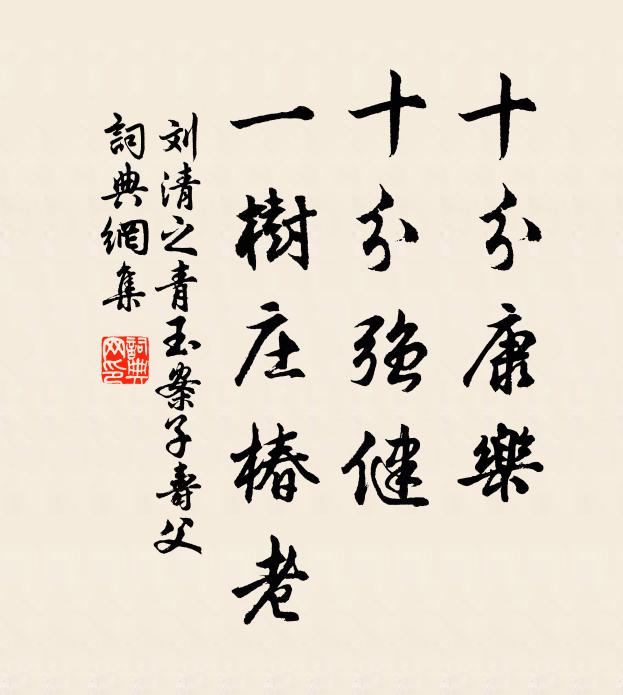 十分康樂
十分強健
一樹庄椿老
刘清之青玉案子壽父
詞典網集
詞典
网印